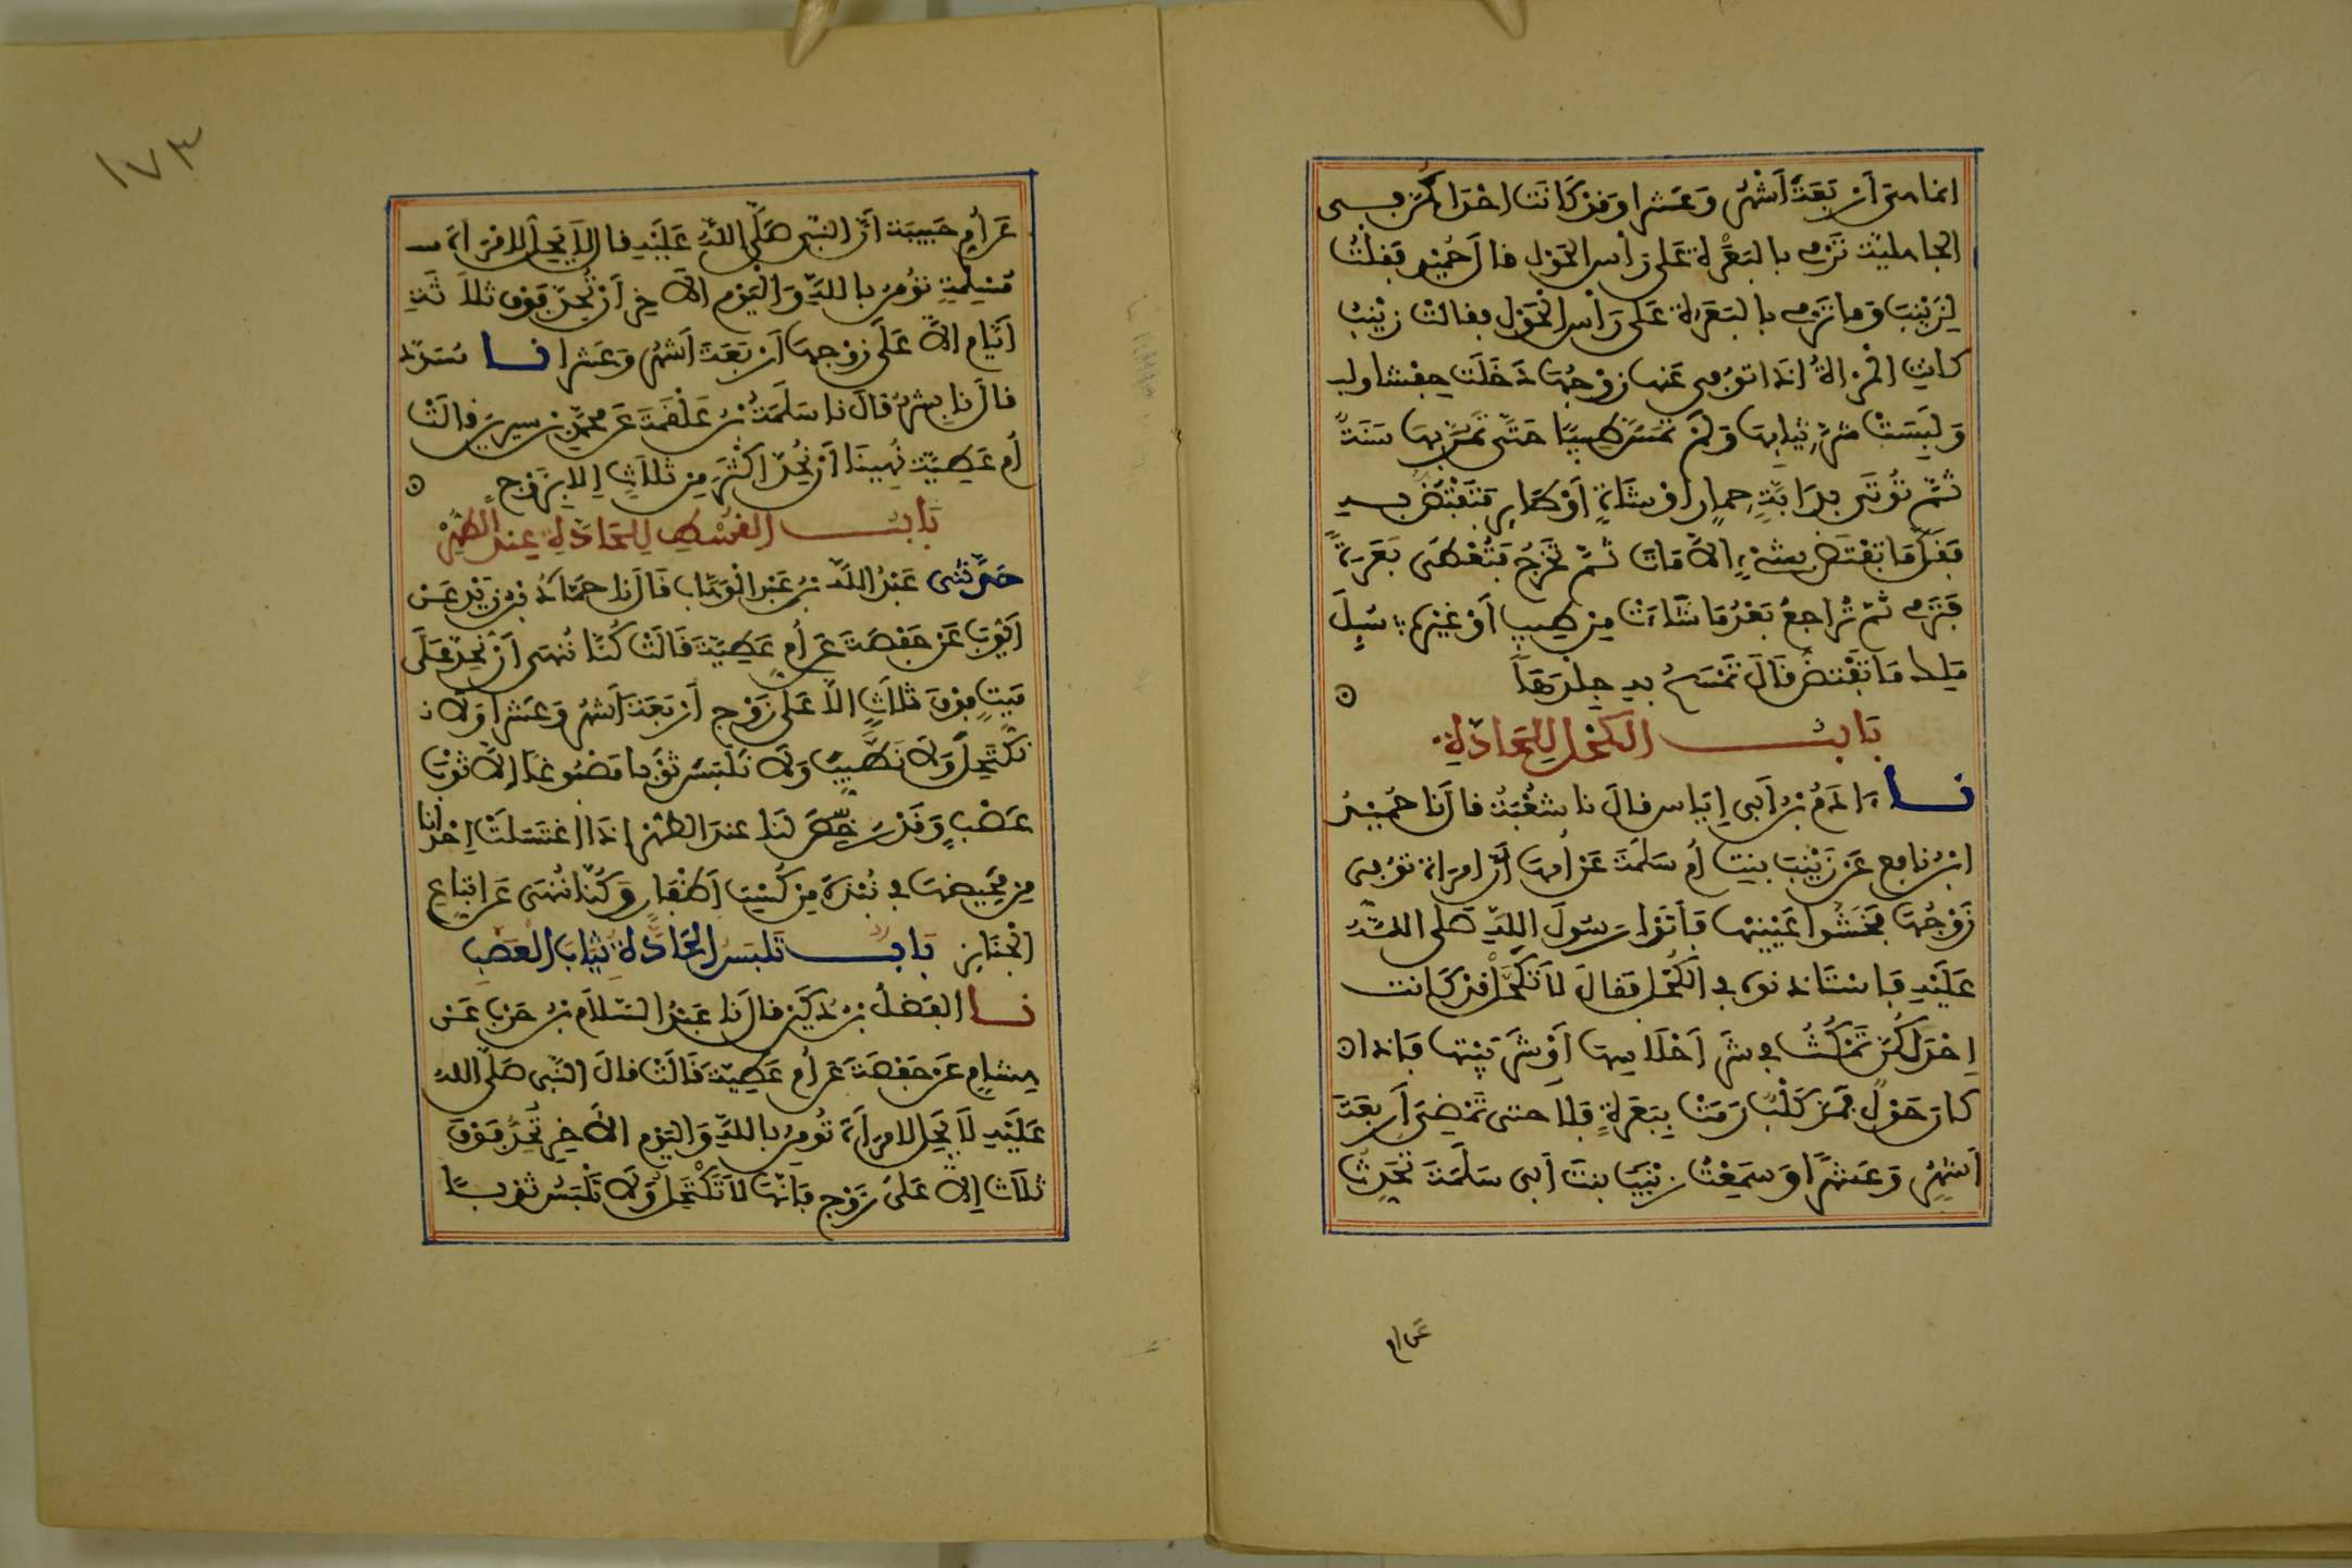 انما هى أربعة أشهر وعشرا وقد كانت احداكن فى
الجاهلية ترمى بالبعرة على رأس الحول قال حميد فقلت
لزينب وما ترمى بالبعرة على رأس الحول فقالت زينب
كانت المرأة اذا توفى عنها زوجها دخلت حفشا
ولبست شر ثيابها ولم تمس طيبا حتى تمر بها سنة
ثم تؤتى بدابة حمار أو شاة أو طاير فتفتض به
فقل ما تفتض بشىء الا مات ثم تخرج فتعطى بعرة
فترمى ثم تراجع بعد ما شاءت من طيب أو غيره سيل
ملك ما تفتض قال تمسح به جلدها
باب الكحل للحادة
نا ءادم بن أبى إياس قال نا شعبة قال نا حميد
ابن نافع عن زينب بنت أم سلمة عن أمها أن امرأة توفى
زوجها فخشوا عينيها فأتوا رسول الله صلى الله
عليه فاستاذنوه فى الكحل فقال لا تكحل قد كانت
إحداكن تمكث فى شر أحلاسها أو شر بيتها فاذا
كان حول فمر كلب رمت ببعرة فلا حتى تمضى أربعة
أشهر وعشرا وسمعت زينب بنت أبى سلمة تحدث
عن ام
١٧٣
عن أم حبيبة أن النبى صلى الله عليه قال لا يحل لامرأة
مسلمة تؤمن بالله واليوم الآخر أن تحد فوق ثلاثة
أيام الا على زوجها أربعة أشهر وعشرا نا مسدد
قال نا بشر قال نا سلمة بن علقمة عن محمد بن سيرين قالت
أم عطية نهينا أن نحد أكثر من ثلاث إلا بزوج
باب القسط للحادة عند الطهر
حدثنى عبد الله بن عبد الوهاب قال نا حماد بن زيد عن
أيوب عن حفصة عن أم عطية قالت كنا ننهى أن نحد على
ميت فوق ثلاث الا على زوج أربعة أشهر وعشرا ولا
نكتحل ولا نطيب ولا نلبس ثوبا مصبوغا إلا ثوب
عصب وقد رخص لنا عند الطهر إذا اغتسلت إحدانا
من محيضها فى نبذة من كست أظفار وكنا ننهى عن اتباع
الجنايز باب تلبس الحادة ثياب العصب
نا الفضل بن دكين قال نا عبد السلام بن حرب عن
هشام عن حفصة عن أم عطية قالت قال النبى صلى الله
عليه لا يحل لامرأة تؤمن بالله واليوم الآخر تحد فوق
ثلاث إلا على زوج فانها لا تكتحل ولا تلبس ثوبا